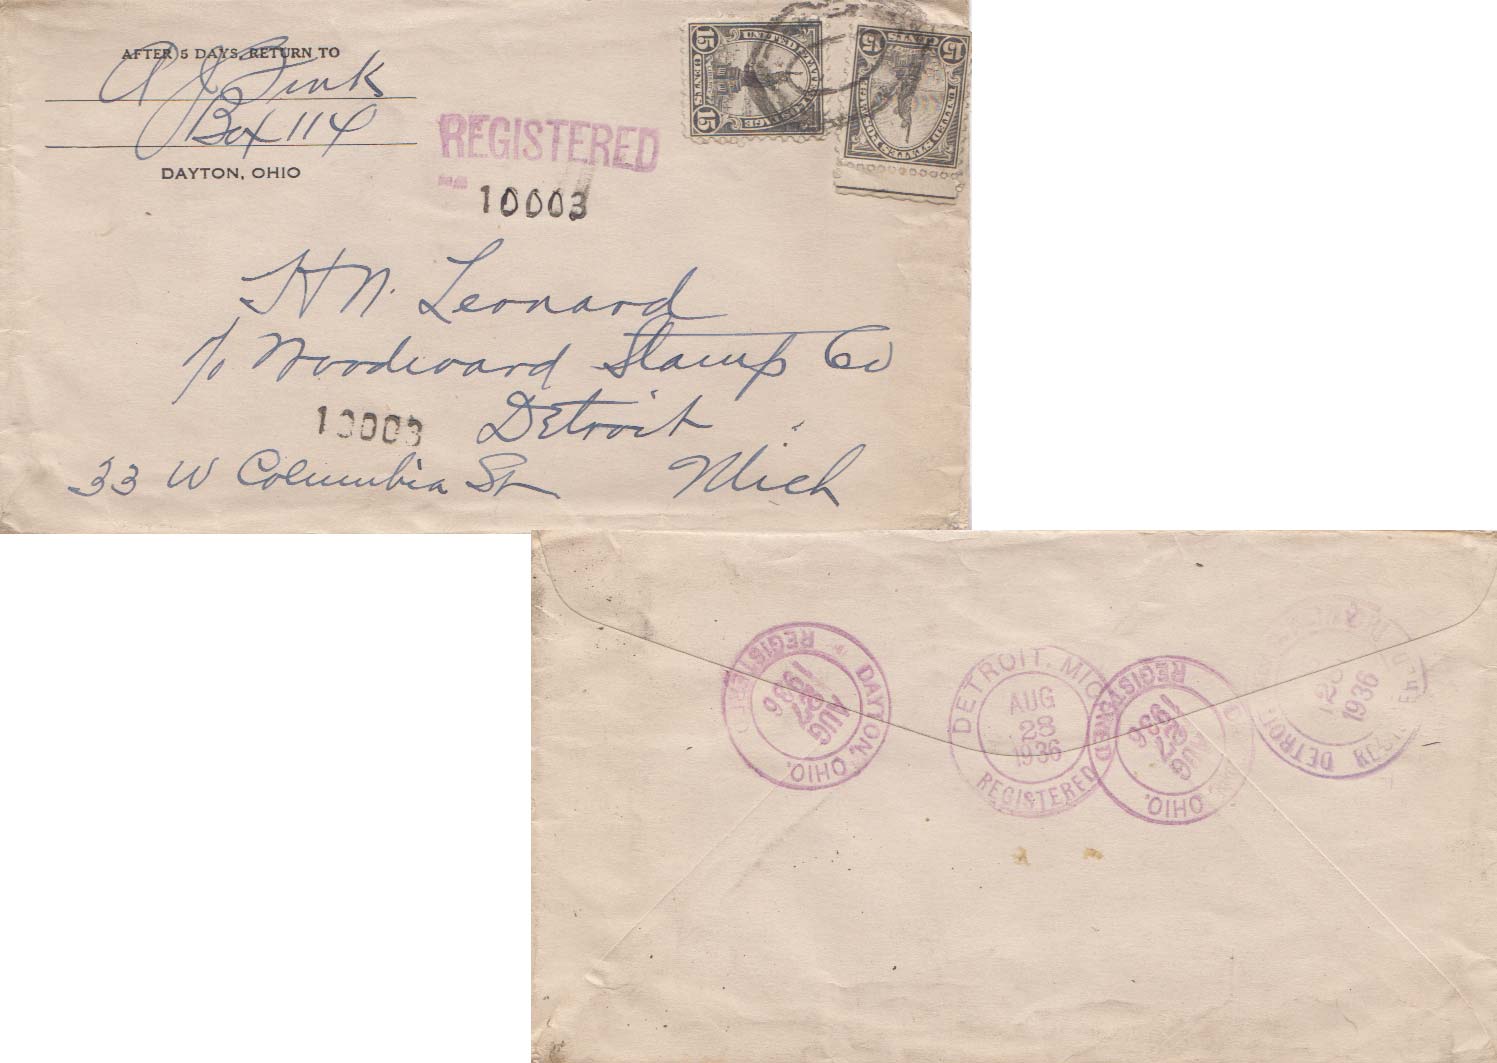 AFTER 5 DAYS, RETURN TO
A J Fink
Box 114
DAYTON, OHIO
REGISTERED
10003
15 15
CENTS
UNITED STATES POSTAGE
15 15
CENTS
UNITED STATES POSTAGE
H N. Leonard
c/o Woodward Stamp Co
10003
Detroit
33 W Columbia St Mich
DAYTON, OHIO.
REGISTERED
AUG
27
1936
DETROIT, MICH.
AUG
28
1936
REGISTERED
OHIO.
REGISTERED
AUG
27
1936
DETROIT
28
1936